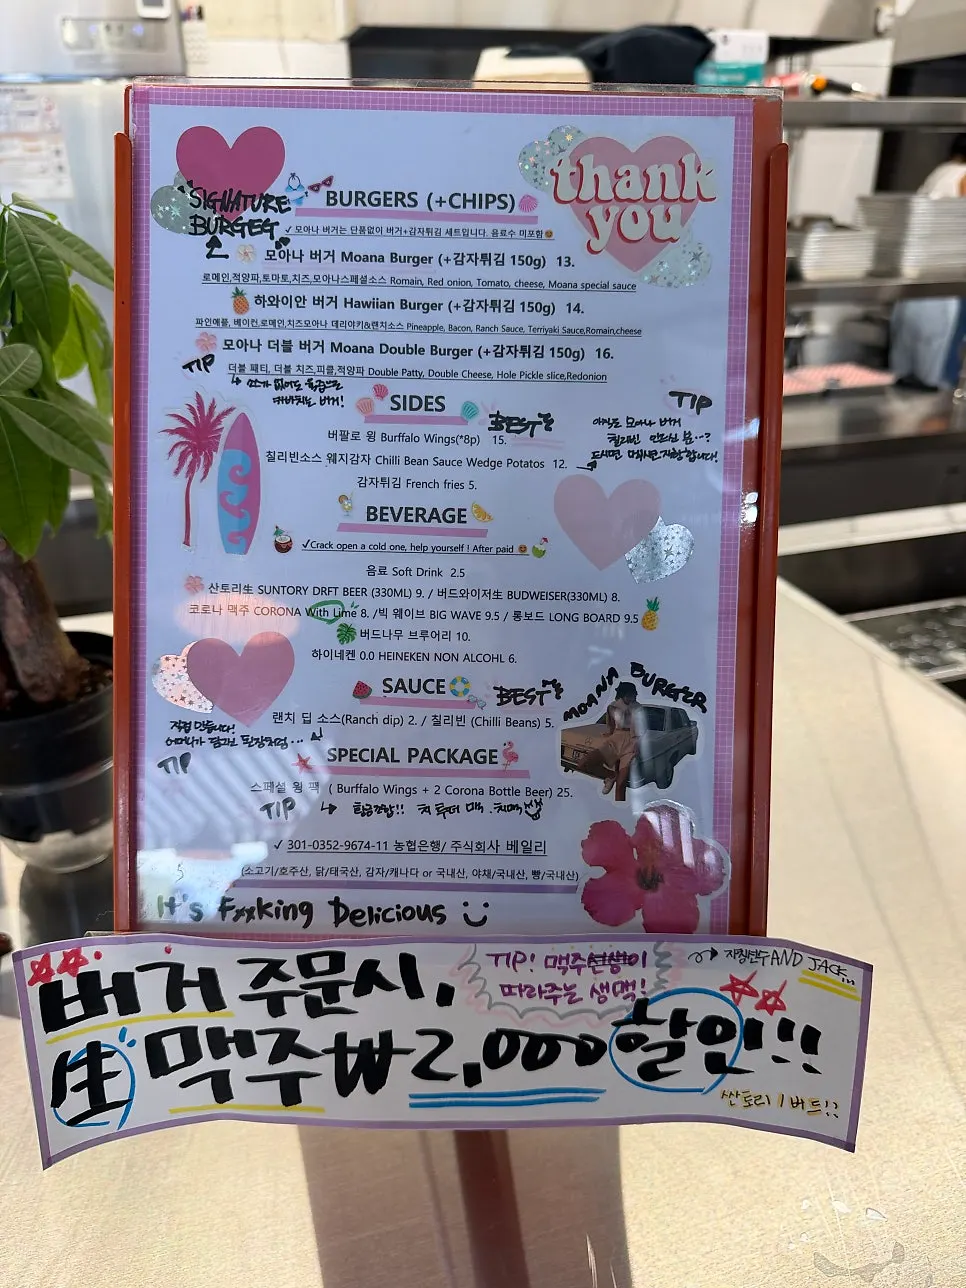 thank
you
SIGNATURE
BURGEG
BURGERS (+CHIPS)
✓ 모아나 버거는 단품없이 버거+감자튀김 세트입니다. 음료수 미포함
모아나 버거 Moana Burger (+감자튀김 150g) 13.
로메인,적양파,토마토,치즈,모아나스페셜소스 Romain, Red onion, Tomato, cheese, Moana special sauce
하와이안 버거 Hawiian Burger (+감자튀김 150g) 14.
파인애플, 베이컨,로메인,치즈모아나 데리야키&랜치소스 Pineapple, Bacon, Ranch Sauce, Terriyaki Sauce,Romain,cheese
모아나 더블 버거 Moana Double Burger (+감자튀김 150g) 16.
TIP
더블 패티, 더블 치즈,피클,적양파 Double Patty, Double Cheese, Hole Pickle slice,Redonion
버거!
SIDES
BEST
TIP
모아나 버거
칠리빈
버팔로 윙 Burffalo Wings(*8p) 15.
칠리빈소스 웨지감자 Chilli Bean Sauce Wedge Potatos 12.
감자튀김 French fries 5.
BEVERAGE
✓Crack open a cold one, help yourself ! After paid
음료 Soft Drink 2.5
산토리生 SUNTORY DRFT BEER (330ML) 9. / 버드와이저生 BUDWEISER(330ML) 8.
코로나 맥주 CORONA With Lime 8. /빅 웨이브 BIG WAVE 9.5 / 롱보드 LONG BOARD 9.5
버드나무 브루어리 10.
하이네켄 0.0 HEINEKEN NON ALCOHL 6.
SAUCE
BEST
MOANA BURGER
랜치 딥 소스(Ranch dip) 2. / 칠리빈 (Chilli Beans) 5.
직접 만듭니다!
어머니가 담궈준 된장처럼...
TIP
SPECIAL PACKAGE
스페셜 윙 팩 ( Burffalo Wings + 2 Corona Bottle Beer) 25.
TIP
✓ 301-0352-9674-11 농협은행/ 주식회사 베일리
(소고기/호주산, 닭/태국산, 감자/캐나다 or 국내산, 야채/국내산, 빵/국내산)
It's Fxxking Delicious
버거 주문시,
TIP! 맥주선생이
따라주는 생맥!
AND JACK...
生 맥주 ₩2,000 할인!!
싼토리 / 버드!!